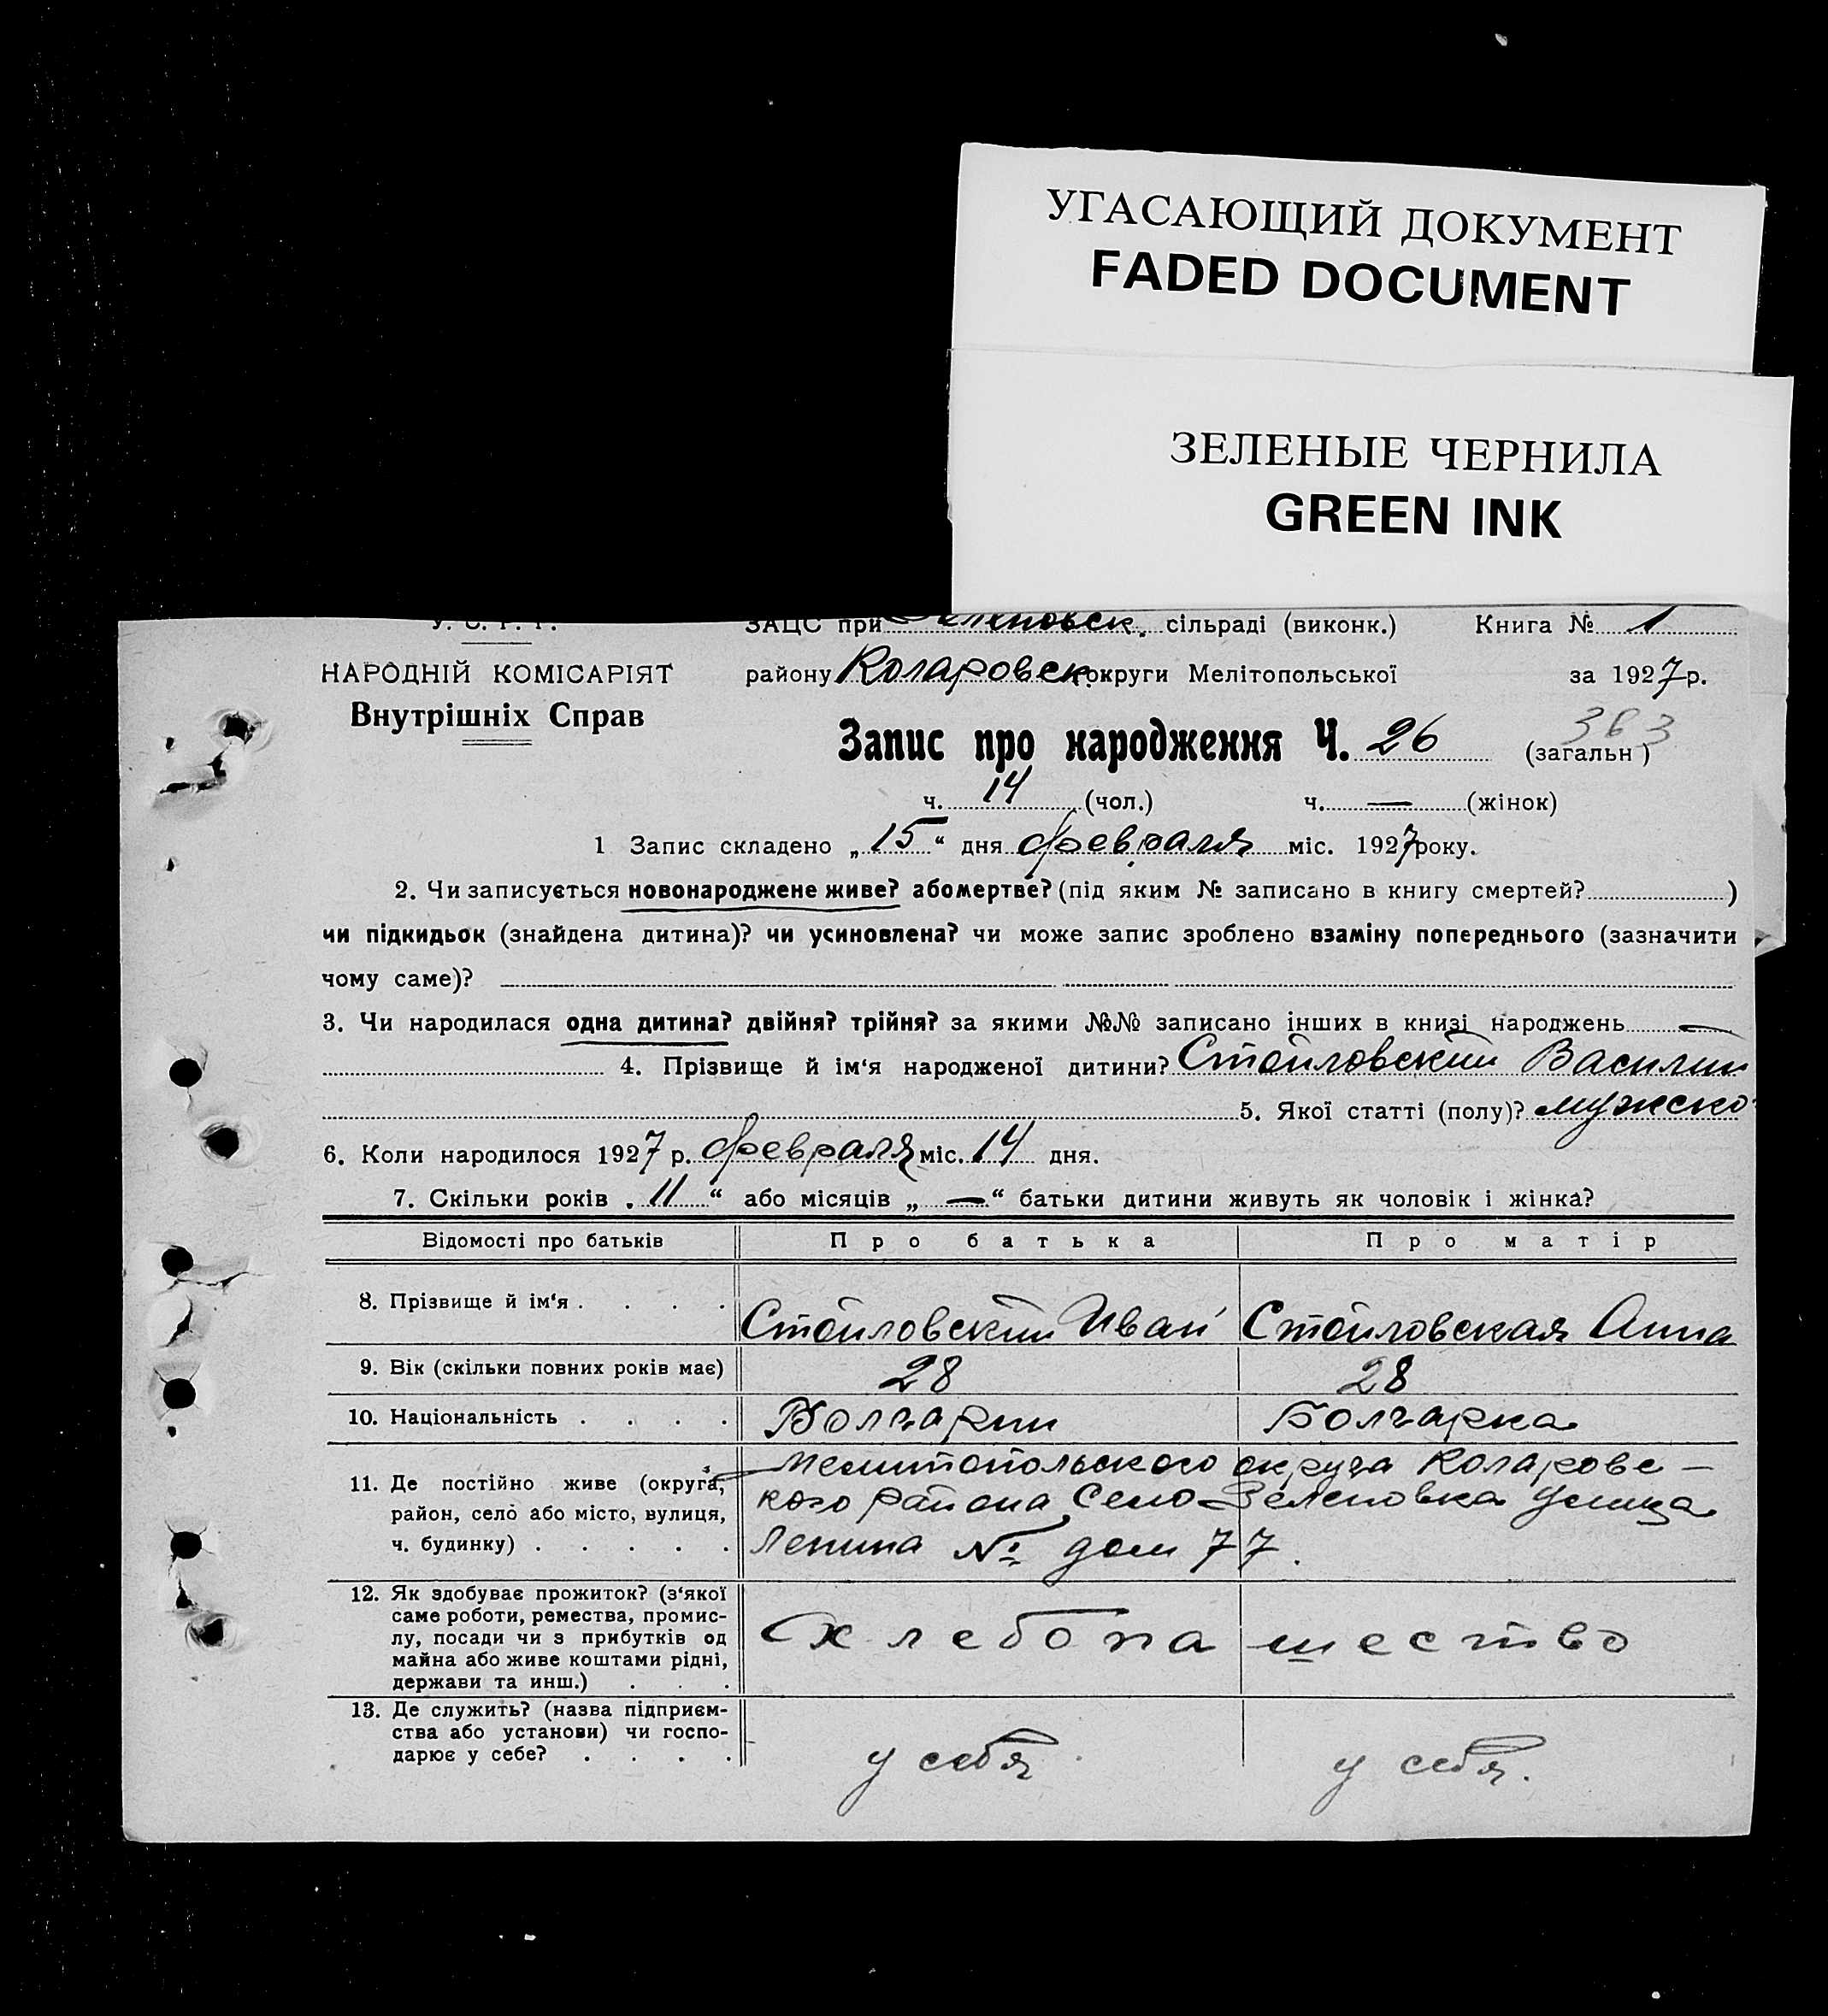 УГАСАЮЩИЙ ДОКУМЕНТ
FADED DOCUMENT
ЗЕЛЕНЫЕ ЧЕРНИЛА
GREEN INK
У. С. Р. Р. ЗАЦС при Зеленовск. сільраді (виконк.) Книга № 1
НАРОДНІЙ КОМІСАРІЯТ району Коларовск округи Мелітопольської за 1927 р.
Внутрішніх Справ
363
Запис про народження Ч. 26 (загальн)
ч. 14 (чол.) ч. — (жінок)
1 Запис складено „15“ дня февраля міс. 1927 року.
2. Чи записується новонароджене живе? або мертве? (під яким № записано в книгу смертей? )
чи підкидьок (знайдена дитина)? чи усиновлена? чи може запис зроблено взаміну попереднього (зазначити
чому саме)?
3. Чи народилася одна дитина? двійня? трійня? за якими №№ записано інших в книзі народжень —
4. Прізвище й ім‘я народженої дитини? Стоиловский Василий
5. Якої статті (полу)? мужско
6. Коли народилося 1927 р. февраля міс. 14 дня.
7. Скільки років „11“ або місяців „—“ батьки дитини живуть як чоловік і жінка?
Відомості про батьків Про батька Про матір
8. Прізвище й ім‘я . . . . Стоиловский Иван Стоиловская Анна
9. Вік (скільки повних років має) 28 28
10. Національність . . . . Болгарин Болгарка
11. Де постійно живе (округа, Мелитопольского округа Коларовс-
район, село або місто, вулиця, кого района Село Зеленовка улица
ч. будинку) . . . . . Ленина № дом 77.
12. Як здобуває прожиток? (з‘якої
саме роботи, ремества, промис-
лу, посади чи з прибутків од хлебопашество
майна або живе коштами рідні,
держави та инш.) . . .
13. Де служить? (назва підприєм-
ства або установи) чи госпо-
дарює у себе? . . . . у себя у себя.